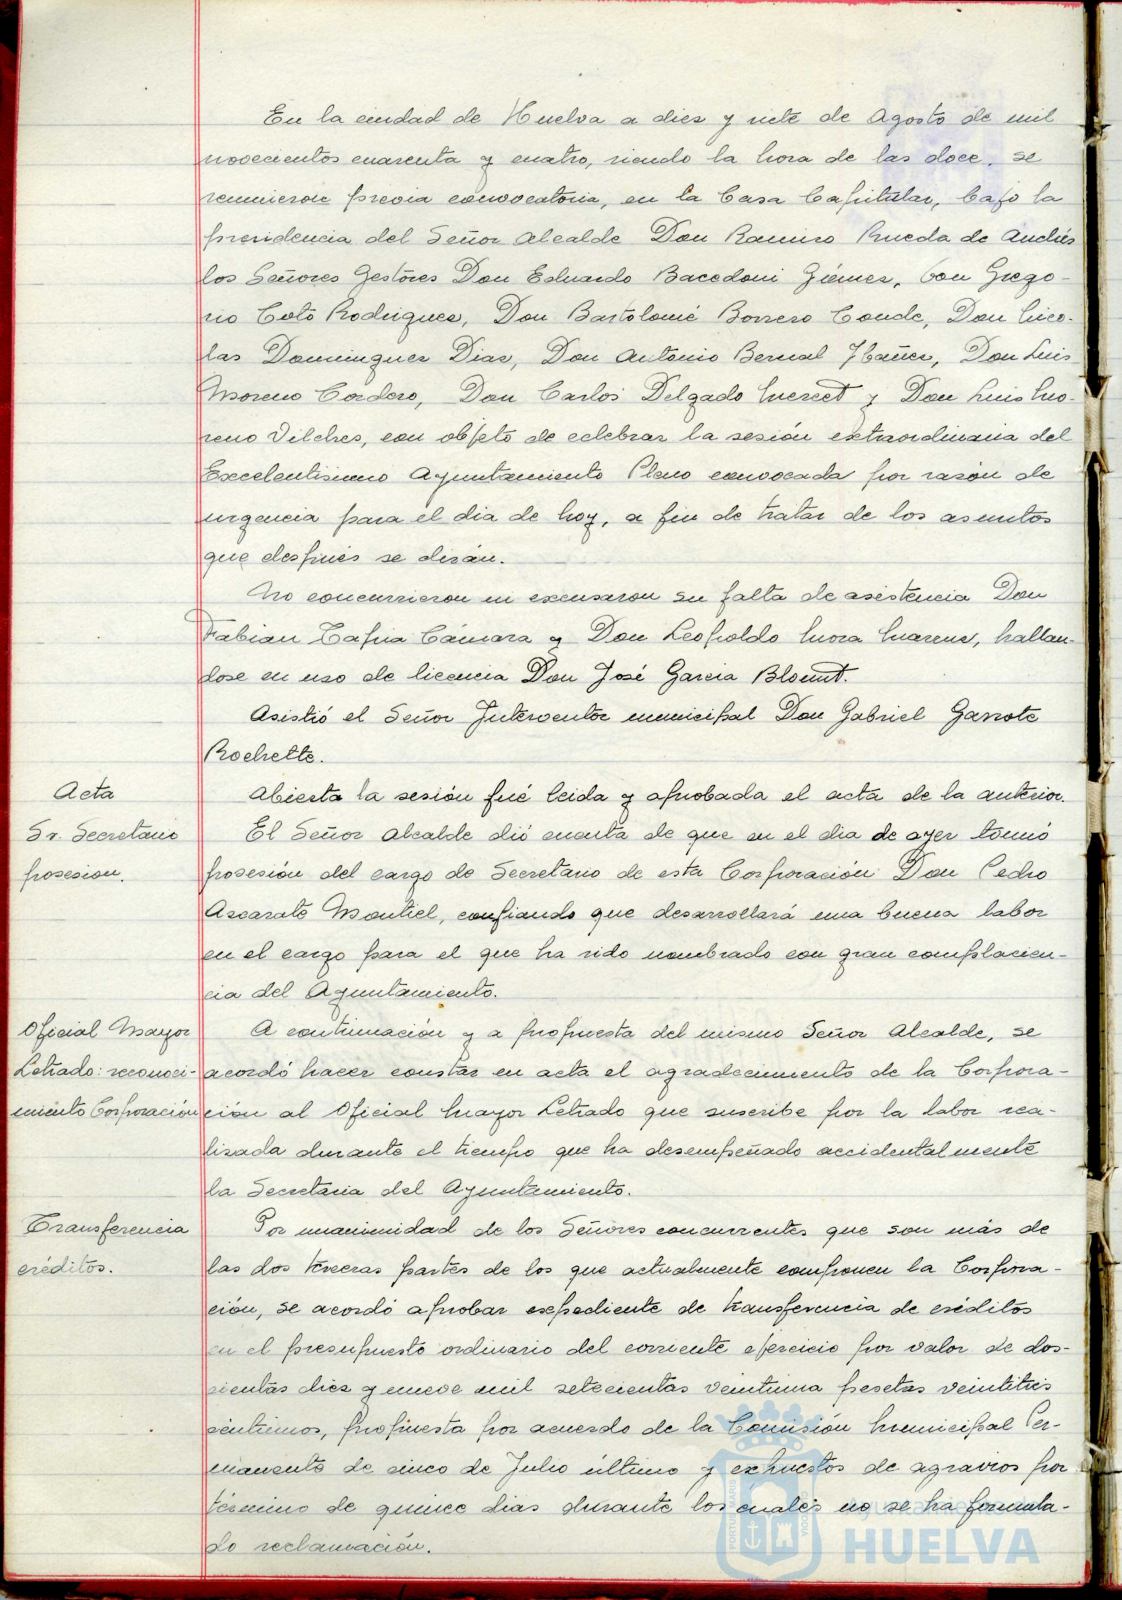 En la ciudad de Huelva a diez y siete de Agosto de mil
novecientos cuarenta y cuatro, siendo la hora de las doce, se
reunieron previa convocatoria, en la Casa Capitular, bajo la
presidencia del Señor Alcalde Don Ramiro Rueda de Andrés
los Señores Gestores Don Eduardo Bacedoni Giémez, Don Grego-
rio Coto Rodriguez, Don Bartolomé Borrero Conde, Don Nico-
las Dominguez Diaz, Don Antonio Bernal Ibañez, Don Luis
Moreno Cordero, Don Carlos Delgado Merect y Don Luis Mo-
reno Vilches, con objeto de celebrar la sesión extraordinaria del
Excelentisimo Ayuntamiento Pleno convocada por razón de
urgencia para el dia de hoy, a fin de tratar de los asuntos
que despues se dirán.
No concurrieron ni excusaron su falta de asistencia Don
Fabian Tapia Cámara y Don Leopoldo Mora, hallan-
dose en uso de licencia Don José Garcia Blount.
Asistió el Señor Interventor municipal Don Gabriel Garrote
Rochette.
Acta
Abierta la sesión fué leida y aprobada el acta de la anterior.
Sr. Secretario
posesion.
El Señor Alcalde dió cuenta de que en el dia de ayer tomó
posesión del cargo de Secretario de esta Corporación Don Pedro
Ascarate Montiel, confiando que desarrollará una buena labor
en el cargo para el que ha sido nombrado con gran complacen-
cia del Ayuntamiento.
Oficial Mayor
Letrado: reconoci-
miento Corporación
A continuación y a propuesta del mismo Señor Alcalde, se
acordó hacer constar en acta el agradecimiento de la Corpora-
ción al Oficial Mayor Letrado que suscribe por la labor rea-
lizada durante el tiempo que ha desempeñado accidentalmente
la Secretaria del Ayuntamiento.
Transferencia
créditos.
Por unanimidad de los Señores concurrentes que son más de
las dos terceras partes de los que actualmente componen la Corpora-
ción, se acordó aprobar expediente de transferencia de créditos
en el presupuesto ordinario del corriente ejercicio por valor de dos-
cientas diez y nueve mil setecientas veintiuna pesetas veintitres
centimos, propuesta por acuerdo de la Comisión Municipal Per-
manente de cinco de Julio último y expuestos de agravios por
término de quince dias durante los cuales no se ha formula-
do reclamación.
Ayuntamiento de
HUELVA